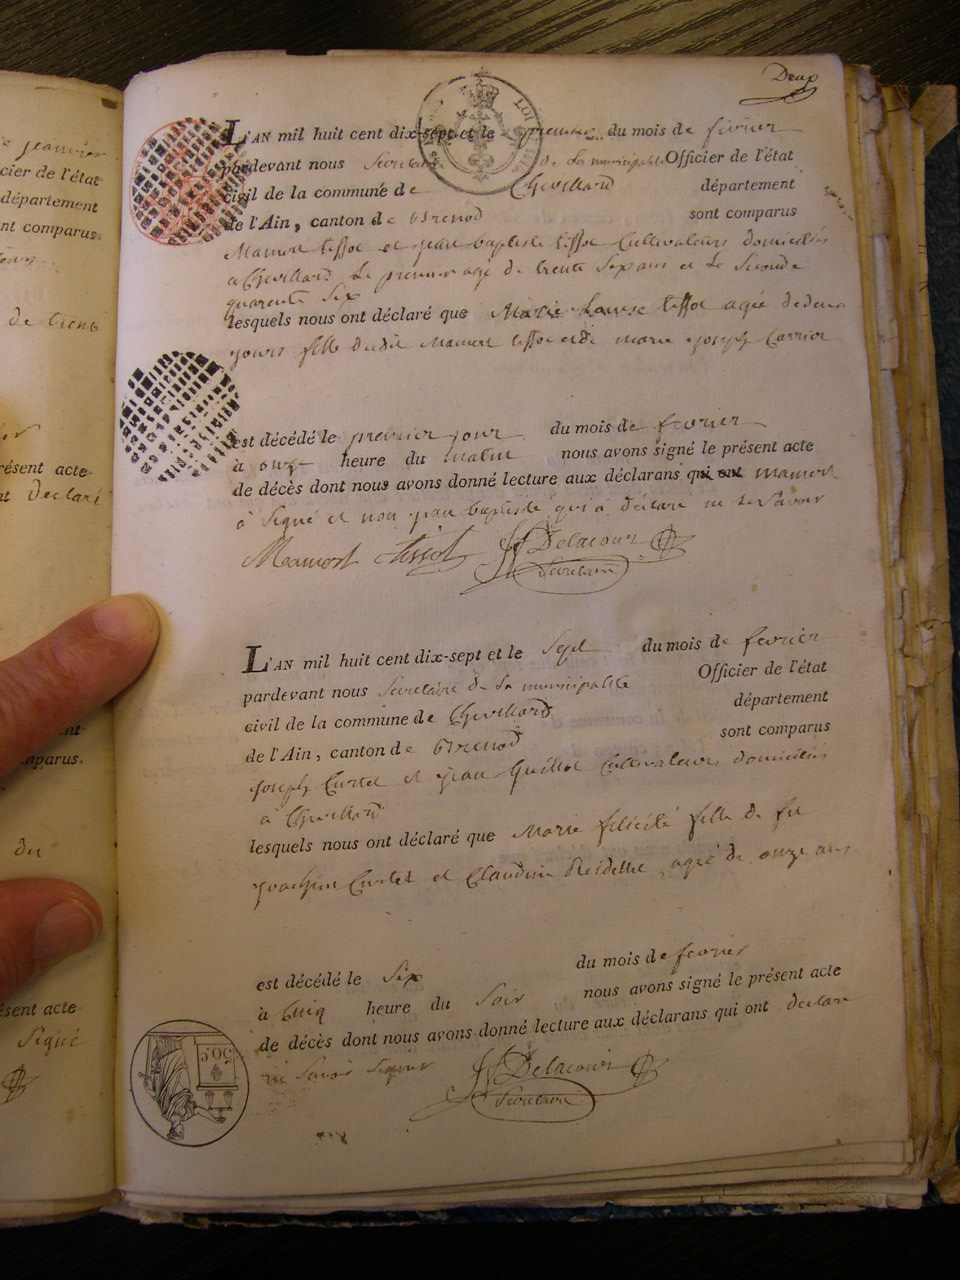 Deux
L'AN mil huit cent dix-sept et le premier du mois de février
pardevant nous Secretaire de la municipalité Officier de l'état
civil de la commune de Chevillard département
de l'Ain, canton de Brenod sont comparus
Mamert tissot et jean baptiste tissot Cultivateurs domiciliés
a Chevillard Le premier agé de trente Six ans et Le Seconde
quarente Six
lesquels nous ont déclaré que Marie Louise tissot agée de deux
jours fille dudit Mamert tissot et de marie joseph Carrier
est décédé le premier jour du mois de fevrier
à onze heure du matin nous avons signé le présent acte
de décès dont nous avons donné lecture aux déclarans qui ont mamert
à Signé et non jean baptiste qui à déclaré ne Le Savoir
Mamert tissot Delacour
Secretaire
L'AN mil huit cent dix-sept et le Sept du mois de fevrier
pardevant nous Secretaire de La municipalité Officier de l'état
civil de la commune de Chevillard département
de l'Ain, canton de Brenod sont comparus
joseph Curtet et jean Guillot Cultivateurs domiciliés
à Chevillard
lesquels nous ont déclaré que Marie felicité fille de fu
joachim Curtet et Claudine agée de onze ans
est décédé le Six du mois de fevrier
à Cinq heure du Soir nous avons signé le présent acte
de décès dont nous avons donné lecture aux déclarans qui ont declaré
ne Savoir Signer Delacour
Secretaire
LOI
50C
janvier
cier de l'état
département
nt comparus.
de trent
résent acte
nt declaré
mparus.
du
ésent acte
Signé